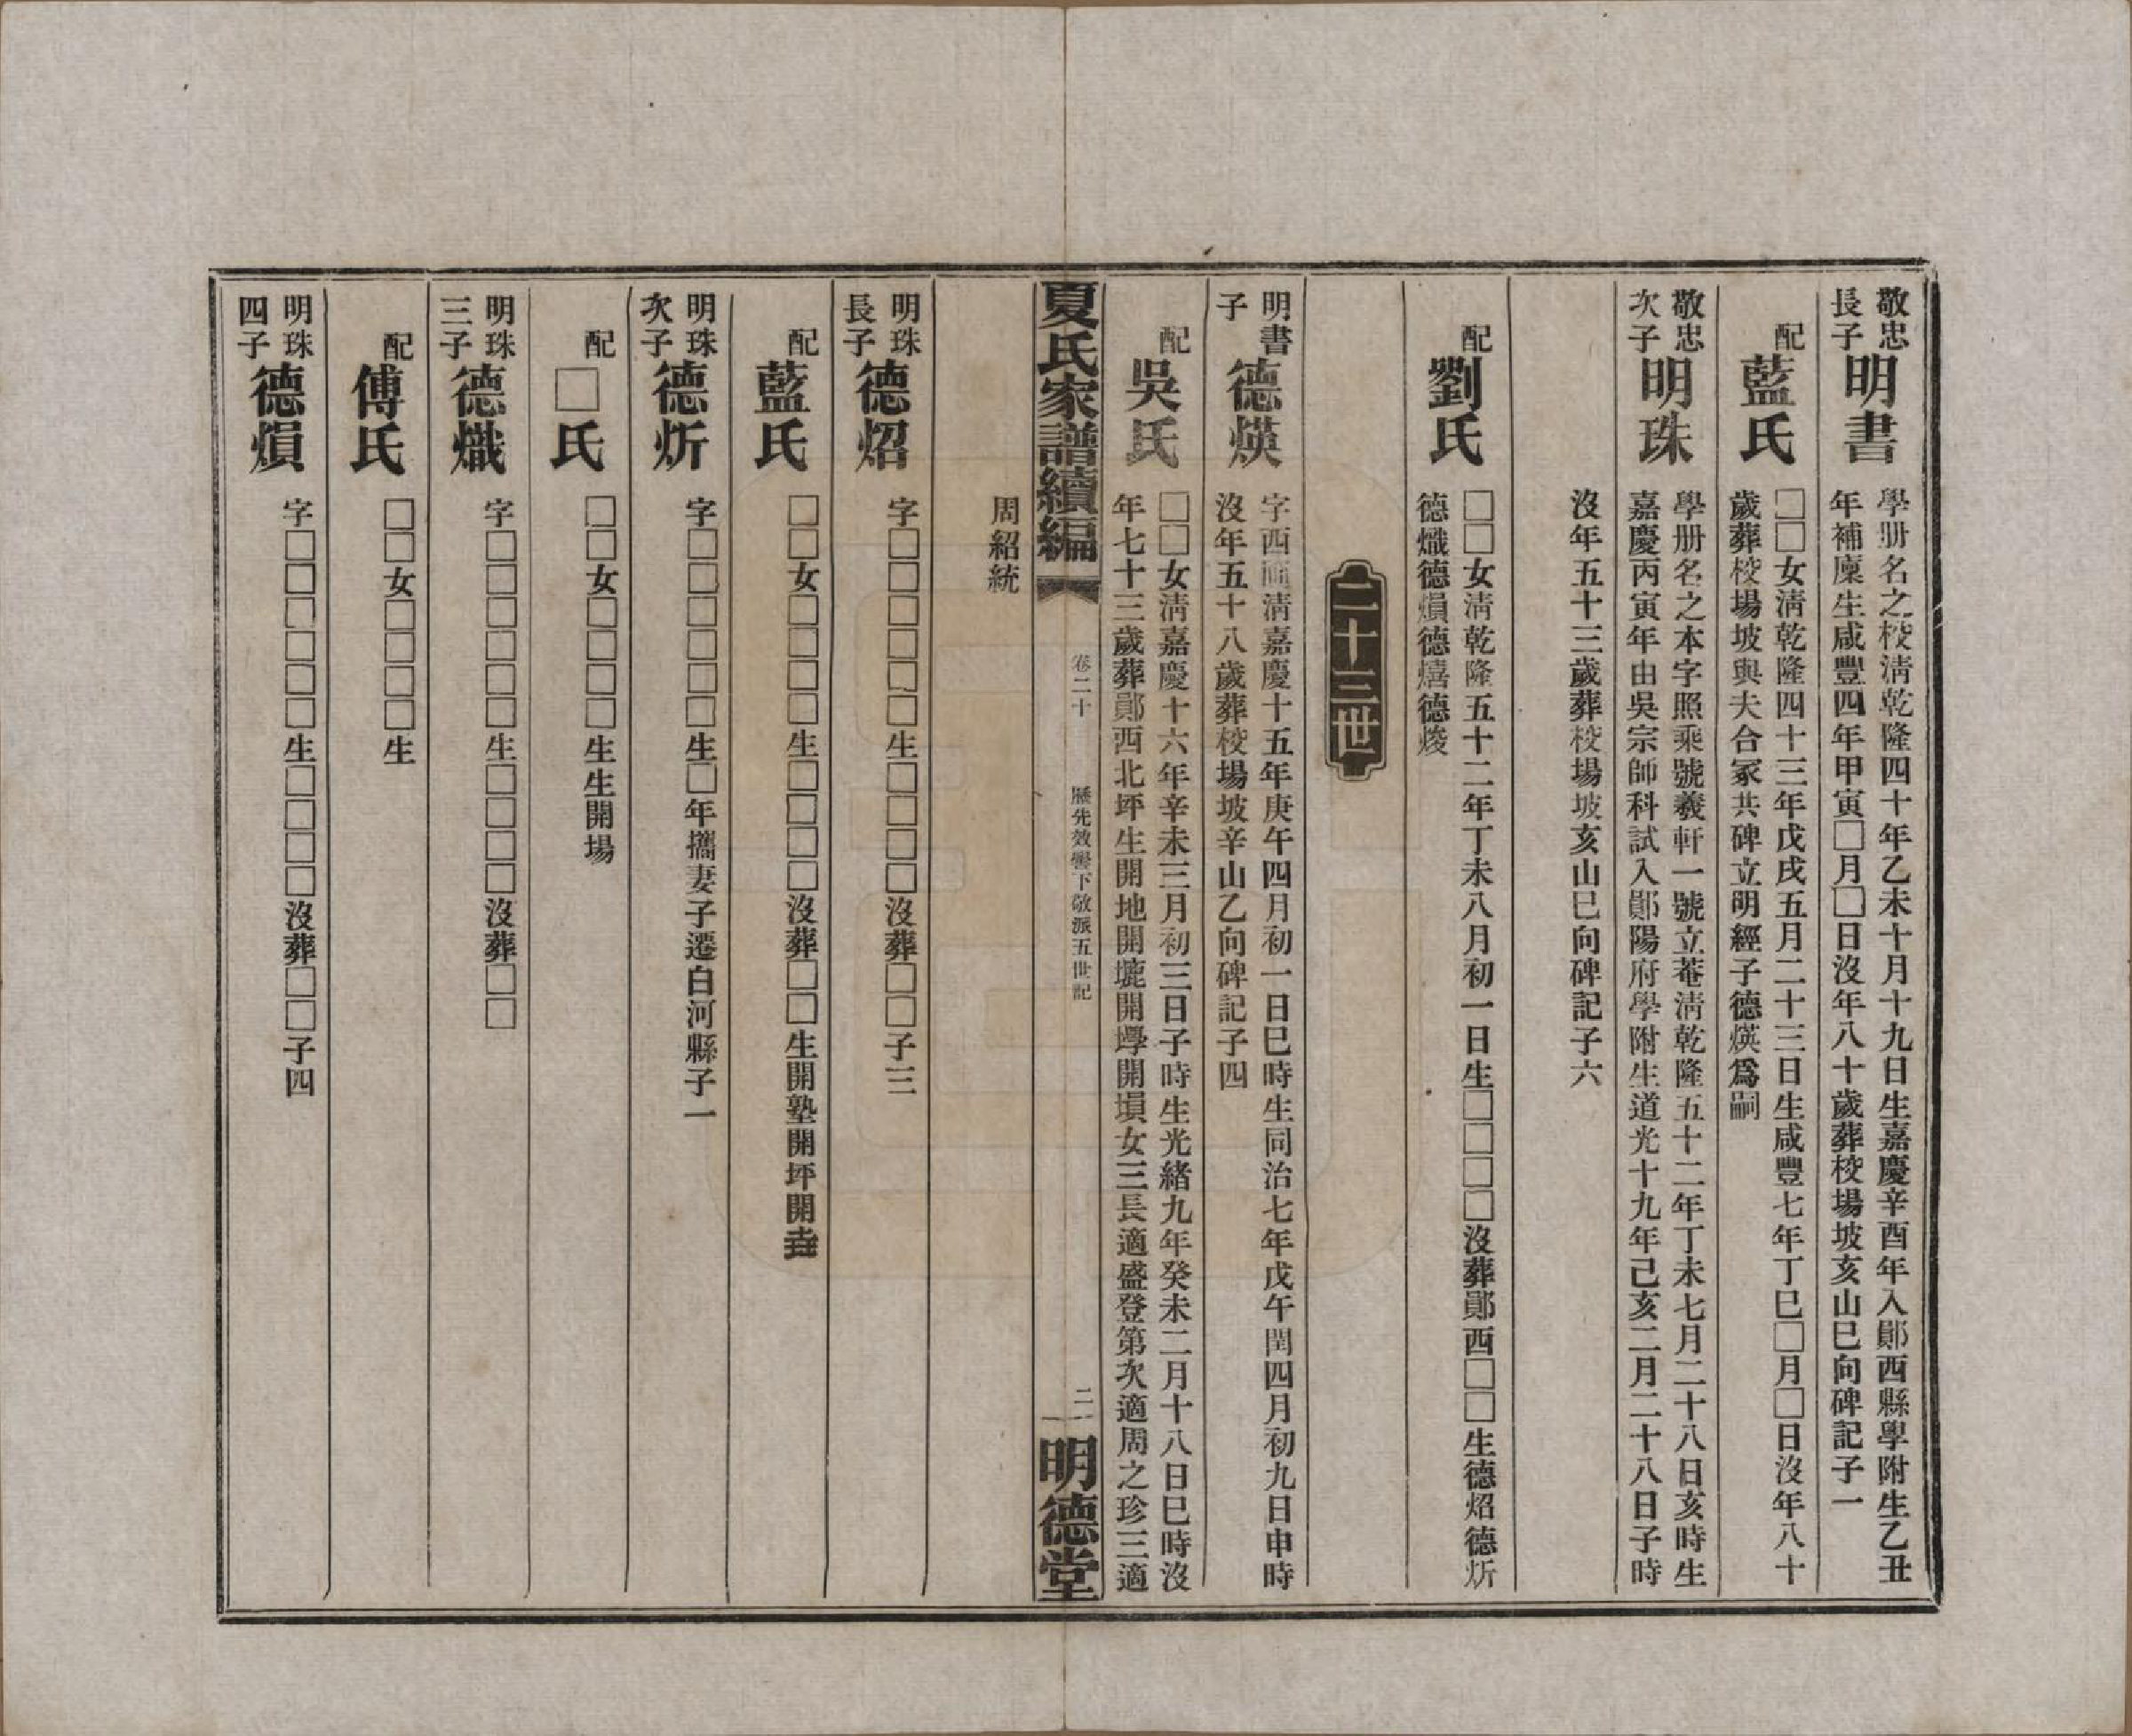 敬忠長子明書
學册名之校清乾隆四十年乙未十月十九日生嘉慶辛酉年入鄖西縣學附生乙丑
年補廩生咸豐四年甲寅□月□日沒年八十歲葬校場坡亥山巳向碑記子一
配藍氏
□□女清乾隆四十三年戊戌五月二十三日生咸豐七年丁巳□月□日沒年八十
歲葬校場坡與夫合冢共碑立明經子德煐爲嗣
敬忠次子明珠
學册名之本字照乘號羲軒一號立菴清乾隆五十二年丁未七月二十八日亥時生
嘉慶丙寅年由吳宗師科試入鄖陽府學附生道光十九年己亥二月二十八日子時
沒年五十三歲葬校場坡亥山巳向碑記子六
配劉氏
□□女清乾隆五十二年丁未八月初一日生□□□□沒葬鄖西□□生德炤德炘
德熾德熉德熺德焌
二十三世
明書子德煐
字西清嘉慶十五年庚午四月初一日巳時生同治七年戊午閏四月初九日申時
沒年五十八歲葬校場坡辛山乙向碑記子四
配吳氏
□□女清嘉慶十六年辛未三月初三日子時生光緒九年癸未二月十八日巳時沒
年七十三歲葬鄖西北坪生開地開墘開壆開塤女三長適盛登第次適周之珍三適
周紹統
夏氏家譜續編
卷二十
歷先效譽下敬派五世記
二
明德堂
明珠長子德炤
字□□□□□□生□□□□沒葬□□子三
配藍氏
□□女□□□□生□□□□沒葬□□生開塾開坪開垚
明珠次子德炘
字□□□□□□生□年攜妻子遷白河縣子一
配□氏
□□女□□□□生生開場
明珠三子德熾
字□□□□□□生□□□□沒葬□□
配傅氏
□□女□□□□生
明珠四子德熉
字□□□□□□生□□□□沒葬□□子四